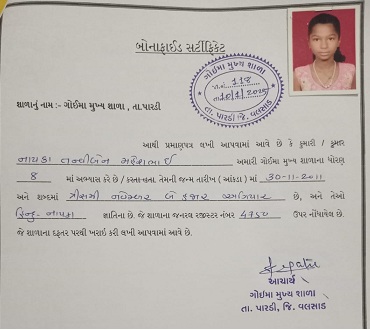 બોનાફાઈડ સર્ટીફિકેટ
ગોઈમા મુખ્ય શાળા
118
તા. પારડી જિ. વલસાડ
શાળાનું નામ :- ગોઈમા મુખ્ય શાળા , તા.પારડી
આથી પ્રમાણપત્ર લખી આપવામાં આવે છે કે કુમારી / કુમાર
નાયકા તન્વીબેન મહેશભાઈ અમારી ગોઈમા મુખ્ય શાળાના ધોરણ
8 માં અભ્યાસ કરે છે / તેમની જન્મ તારીખ ( આંકડા ) માં 30-11-2011
અને શબ્દમાં ત્રીસમી નવેમ્બર બે હજાર અગિયાર છે, અને તેઓ
હિન્દુ-નાયકા જાતિના છે. જે શાળાના જનરલ રજીસ્ટર નંબર ઉપર નોંધાયેલ છે.
જે શાળાના દફતર પરથી ખરાઈ કરી લખી આપવામાં આવે છે.
આચાર્ય
ગોઈમા મુખ્ય શાળા
તા. પારડી, જિ. વલસાડ